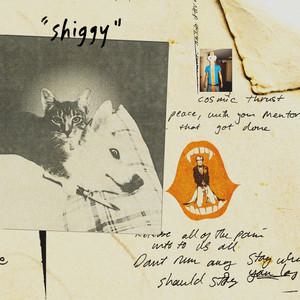 "shiggy"
cosmic thrust
peace, with your mentor
that got done
all of the pain
into to us all
Dont run away Stay
should Stay you